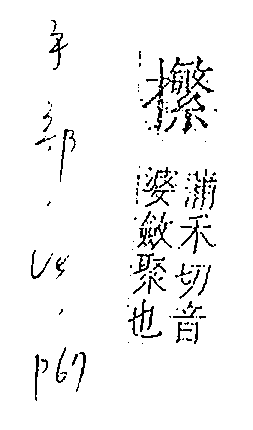 蒲禾切音
婆斂聚也
手部. V4, p67